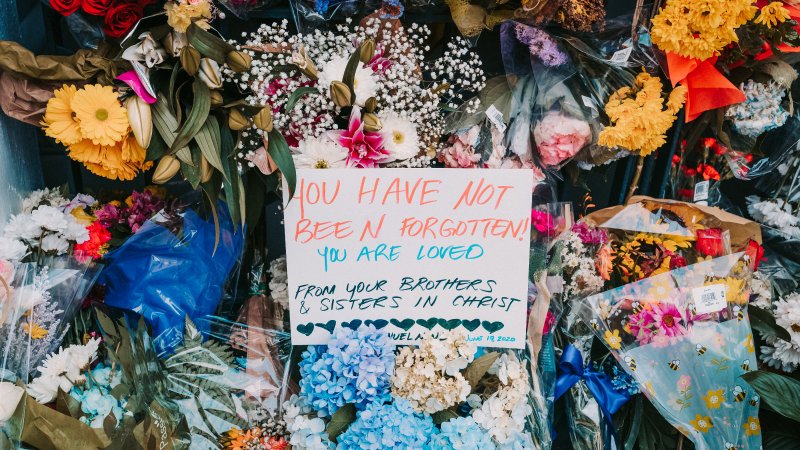 YOU HAVE NOT
BEEN FORGOTTEN!
YOU ARE LOVED
FROM YOUR BROTHERS
& SISTERS IN CHRIST
JUNE 19, 2020